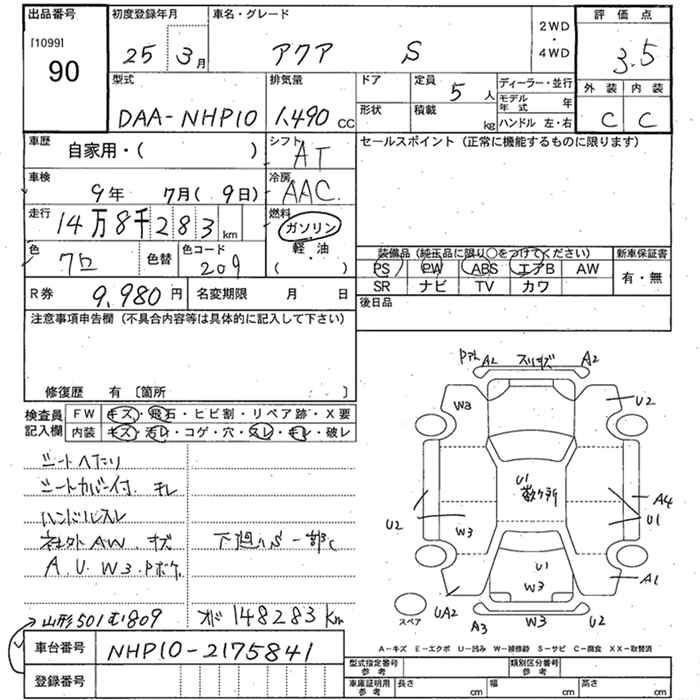 出品番号
[1099]
90
初度登録年月
25 3月
車名・グレード
アクア S
2WD
・
4WD
評価点
3.5
外装 内装
C C
型式
DAA-NHP10
排気量
1,490 CC
ドア
形状
定員
5人
積載
kg
ディーラー・並行
モデル年式 年
ハンドル 左・右
車歴
自家用・( )
シフト
AT
セールスポイント (正常に機能するものに限ります)
車検
9年 7月( 9日)
冷房
AAC
走行
14万8千283km
燃料
ガソリン
軽・油
( )
色
クロ
色替
色コード
209
装備品 (純正品に限り○をつけてください)
PS PW ABS エアB AW
SR ナビ TV カワ
新車保証書
有・無
R券
9,980円
名変期限 月 日
後日品
注意事項申告欄 (不具合内容等は具体的に記入して下さい)
修復歴 有 〔箇所 〕
検査員
記入欄
FW キズ・飛石・ヒビ割・リペア跡・X要
内装 キズ・汚レ・コゲ・穴・スレ・キレ・破レ
シートヘタリ
シートカバー付. キレ
ハンドルスレ
社外AW. キズ
下廻りS一部C
A. U. W3. Pボケ.
山形501む809
オド 148283km
車台番号
NHP10-2175841
登録番号
A2 スリキズ A2
W3
U2
U1
U2
W3
A4
U1
U1
W3
A1
UA2
A3
W3
U2
スペア
A-キズ E-エクボ U-凹み W-補修跡 S-サビ C-腐食 XX-取替済
型式指定番号
参考
類別区分番号
参考
車庫証明用
参考
長さ cm
幅 cm
高さ cm